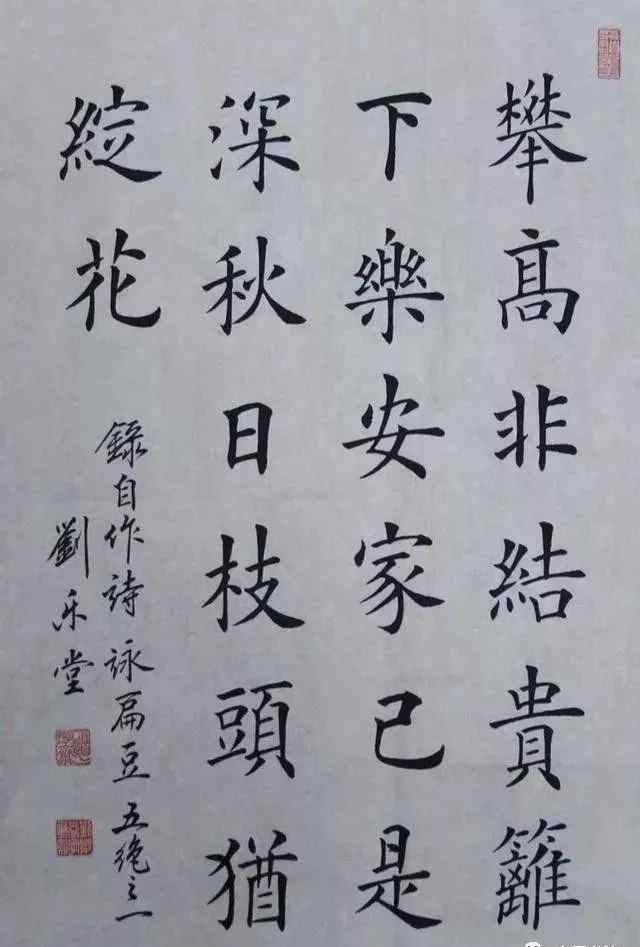 攀高非結貴籬
下樂安家已是
深秋日枝頭猶
綻花
錄自作詩詠扁豆五絕之一
劉乐堂